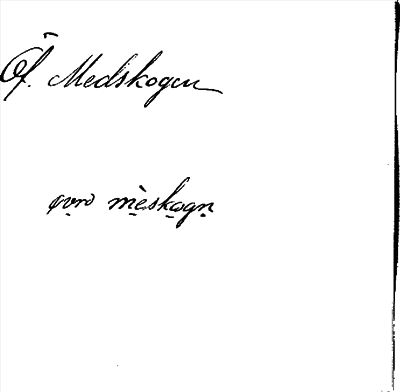 Öf. Medskogen
øvrə mèskogn̥